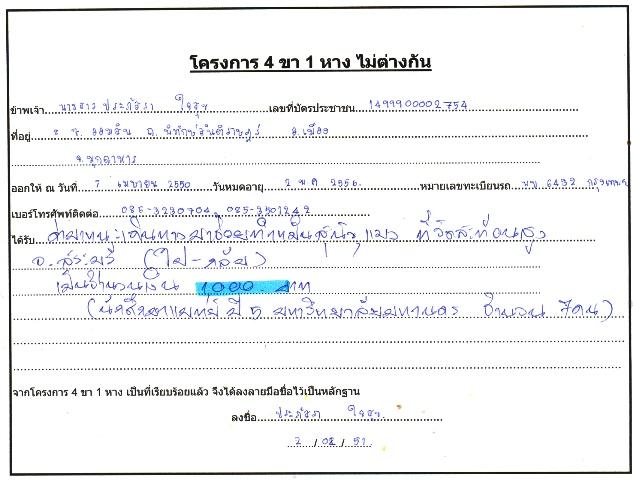 โครงการ 4 ขา 1 หาง ไม่ต่างกัน
ข้าพเจ้า ประภัสรา เลขที่บัตรประชาชน 1499900002754
ที่อยู่ อ.เมือง
จ.มุกดาหาร
ออกให้ ณ วันที่ 7 เมษายน 2550 วันหมดอายุ 2 พ.ค 2556. หมายเลขทะเบียนรถ 6432 กรุงเทพฯ
เบอร์โทรศัพท์ติดต่อ 085-3230704, 085-3301242
ได้รับ ค่าพาหนะเดินทางมาช่วยทำหมันสุนัข แมว ที่วัดสะท้อนสูง
จ.สระบุรี (ไป-กลับ)
เป็นจำนวนเงิน 1000 บาท
(นักศึกษาแพทย์ ปี 5 มหาวิทยาลัยมหานคร จำนวน 7 คน)
จากโครงการ 4 ขา 1 หาง เป็นที่เรียบร้อยแล้ว จึงได้ลงลายมือชื่อไว้เป็นหลักฐาน
ลงชื่อ ประภัสรา
2 / 02 / 51